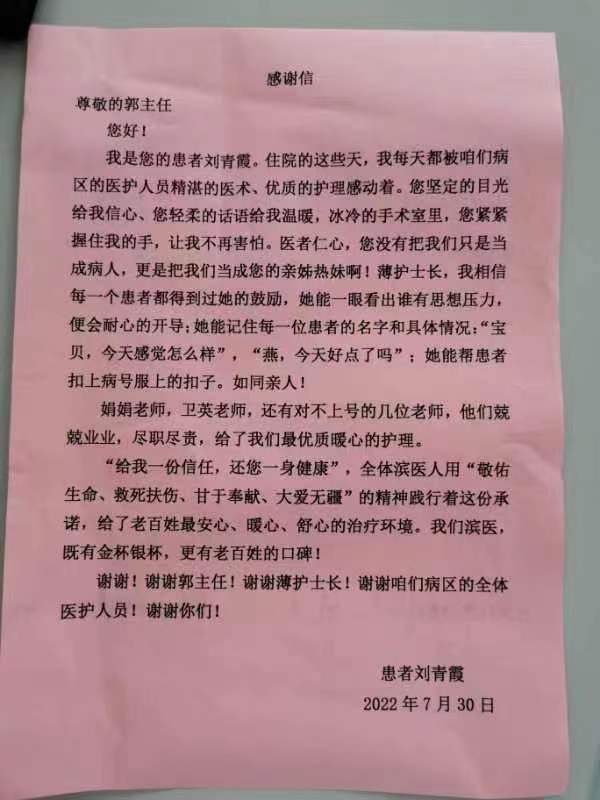 感谢信
尊敬的郭主任
您好！
我是您的患者刘青霞。住院的这些天，我每天都被咱们病
区的医护人员精湛的医术、优质的护理感动着。您坚定的目光
给我信心、您轻柔的话语给我温暖，冰冷的手术室里，您紧紧
握住我的手，让我不再害怕。医者仁心，您没有把我们只是当
成病人，更是把我们当成您的亲姊热妹啊！薄护士长，我相信
每一个患者都得到过她的鼓励，她能一眼看出谁有思想压力，
便会耐心的开导；她能记住每一位患者的名字和具体情况：“宝
贝，今天感觉怎么样”，“燕，今天好点了吗”；她能帮患者
扣上病号服上的扣子。如同亲人！
娟娟老师，卫英老师，还有对不上号的几位老师，他们兢
兢业业，尽职尽责，给了我们最优质暖心的护理。
“给我一份信任，还您一身健康”，全体滨医人用“敬佑
生命、救死扶伤、甘于奉献、大爱无疆”的精神践行着这份承
诺，给了老百姓最安心、暖心、舒心的治疗环境。我们滨医，
既有金杯银杯，更有老百姓的口碑！
谢谢！谢谢郭主任！谢谢薄护士长！谢谢咱们病区的全体
医护人员！谢谢你们！
患者刘青霞
2022年7月30日